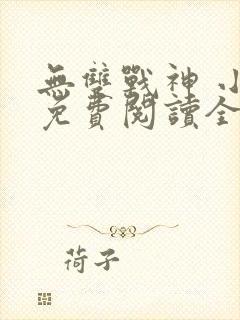 無雙戰神 小
免費閱讀全
荷子